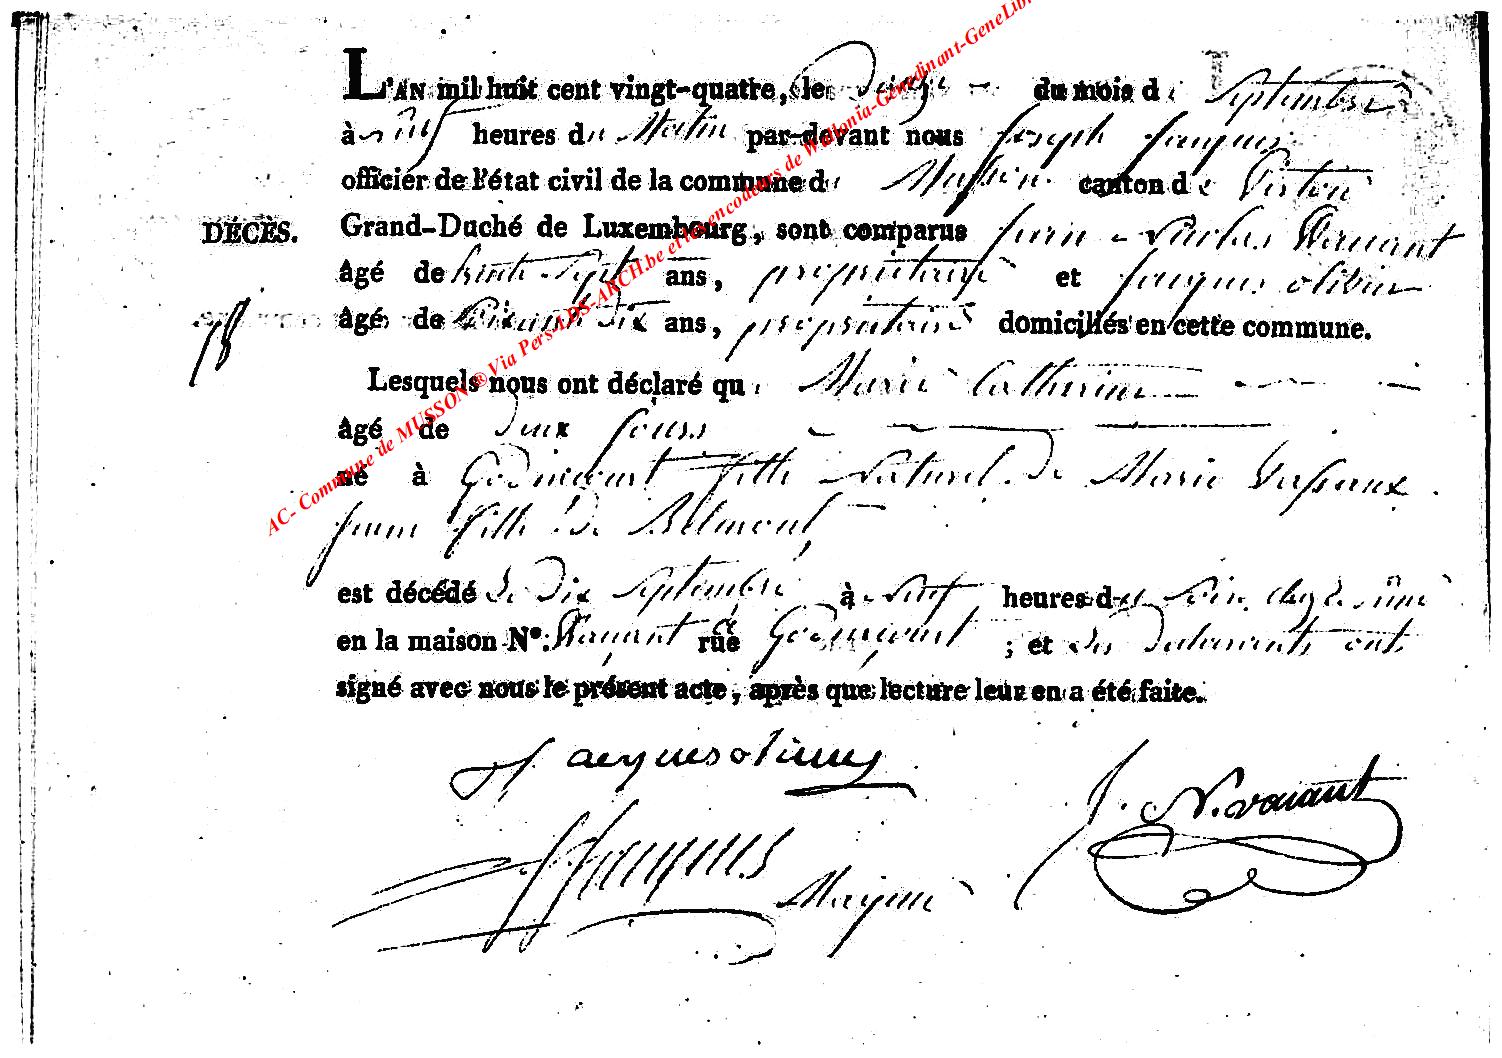 L'AN mil huit cent vingt-quatre, le du mois de Septembre
à neuf heures du Matin par-devant nous Joseph Jacques
officier de l'état civil de la commune de Musson canton de Virton
DÉCÈS. Grand-Duché de Luxembourg, sont comparus Jean Nicolas Wauant
âgé de trente Sept ans, propriétaire et Jacques olivier
âgé de dix ans, propriétaire domiciliés en cette commune.
78
Lesquels nous ont déclaré que Marie Catherine
âgé de deux jours
né à Godincourt fille Naturel de Marie
jeune fille de Belmont
est décédé le Dix Septembre à neuf heures du Soir
en la maison N°. Wauant rue Godincourt ; et les Déclarants ont
signé avec nous le présent acte, après que lecture leur en a été faite.
Jacques olivier
J. N. vauant
JJacques Mayeur
AC- Commune de MUSSON ® Via Pers-ADS-ARCH.be et les encodeurs de Wallonia-Genedinant-GeneLibr